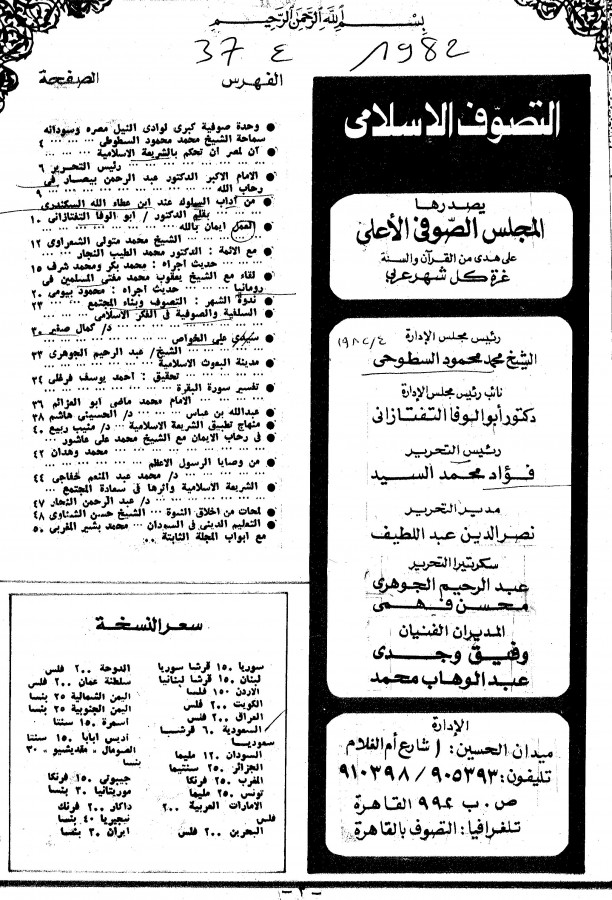 بِسْمِ اللَّهِ الرَّحْمَنِ الرَّحِيمِ
37 ع 1982
التصوّف الاسلامى
يصدرها
المجلس الصّوفى الأعلى
على هدى من القرآن والسنة
غرة كل شهر عربى
رئيس مجلس الإدارة
الشيخ محمد محمود السطوحى
نائب رئيس مجلس الإدارة
دكتور أبو الوفا التفتازانى
رئيس التحرير
فؤاد محمد السيد
مدير التحرير
نصر الدين عبد اللطيف
سكرتيرا التحرير
عبد الرحيم الجوهرى
محسن فهمى
المديران الفنيان
وفيق وجدى
عبد الوهاب محمد
الإدارة
ميدان الحسين: ١ شارع أم الغلام
تليفون: ٩٠٥٣٩٣ / ٩١٠٣٩٨
ص . ب ٩٩٢ القاهرة
تلغرافيا: التصوف بالقاهرة
الفهرس الصفحة
● وحدة صوفية كبرى لوادى النيل مصره وسودانه
سماحة الشيخ محمد محمود السطوطى ... ... ٤
● آن لمصر أن تحكم بالشريعة الاسلامية ... ...
... ... ... ... رئيس التحرير ٦
● الامام الاكبر الدكتور عبد الرحمن بيصار فى
رحاب الله ... ... ... ... ٩
● من آداب السلوك عند ابن عطاء الله السكندرى
... ... بقلم الدكتور / ابو الوفا التفتازانى ١٠
● العمل ايمان بالله ... ... ...
... ... الشيخ محمد متولى الشعراوى ١٢
● مع الائمة : الدكتور محمد الطيب النجار ...
... حديث أجراه : محمد بكر ومحمد شرف ١٥
● لقاء مع الشيخ يعقوب محمد مفتى المسلمين فى
رومانيا ... حديث أجراه : محمود بيومى ٢٠
● ندوة الشهر : التصوف وبناء المجتمع ... ٢٣
● السلفية والصوفية فى الفكر الاسلامى ... ...
... ... ... ... د/ كمال صقير ٣٠
● سيدى على الخواص ... ... ...
... ... الشيخ/ عبد الرحيم الجوهرى ٣٣
● مدينة البعوث الاسلامية ... ...
... ... تحقيق : احمد يوسف فرغلى ٣٤
● تفسير سورة البقرة ... ... ...
... ... الامام محمد ماضى ابو العزائم ٣٦
● عبدالله بن عباس ... ... د/ الحسينى هاشم ٣٨
● منهاج تطبيق الشريعة الاسلامية ... د/ منيب ربيع ٤٠
● فى رحاب الايمان مع الشيخ محمد على عاشور ...
... ... ... ... محمد وهدان ٤٢
● من وصايا الرسول الاعظم ... ...
... ... د/ محمد عبد المنعم خفاجى ٤٤
● الشريعة الاسلامية واثرها فى سعادة المجتمع ...
... ... ... د/ عبد الرحمن النجار ٤٧
● لمحات من اخلاق النبوة ... الشيخ حسن الشناوى ٤٨
● التعليم الدينى فى السودان ... محمد بشير المغربى ٥٠
مع ابواب المجلة الثابتة ..
سعر النسخة
سوريا ١٥٠ قرشا سوريا
لبنان ١٥٠ قرشا لبنانيا
الاردن ١٥٠ فلسا
الكويت ٢٠٠ فلس
العراق ٢٠٠ فلس
السعودية ٦٠ قرشا
سعوديا
السودان ١٢٠ مليما
الجزائر ٢٥٠ سنتيما
المغرب ٢٥٠ فرنكا
تونس ٢٥٠ مليما
الامارات العربية ٢٠٠
فلس
البحرين ٢٠٠ فلس
الدوحة ٢٠٠ فلس
سلطنة عمان ٢٠٠ فلس
اليمن الشمالية ٢٥ بنسا
اليمن الجنوبية ٢٥ بنسا
اسمرة ١٥٠ سنتا
أديس أبابا ١٥٠ سنتا
الصومال « مقديشيو » ٣٠
بنسا
جيبوتى ١٥٠ فرنكا
موريتانيا ٣٠ بنسا
داكار ٢٠٠ فرنك
نيجيريا ٤٠ بنسا
ايران ٣٠ بنسا
— ٣ —